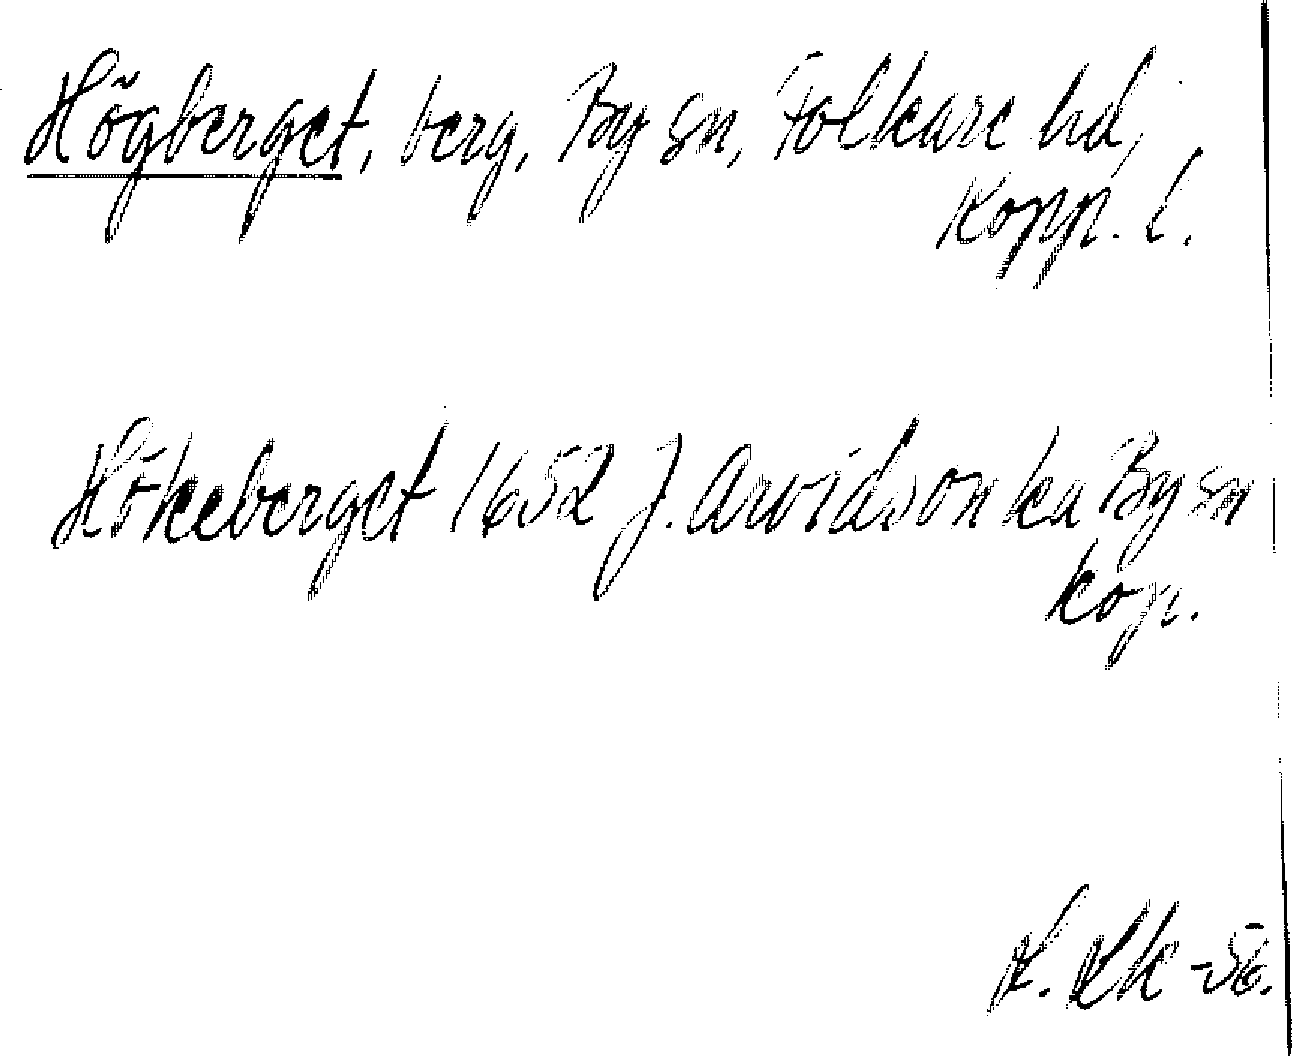 Högberget, berg, By sn, Folkare hd,
Kopp. l.
Hökeberget 1652 J. Arvidson ka By sn
kop.
-56.